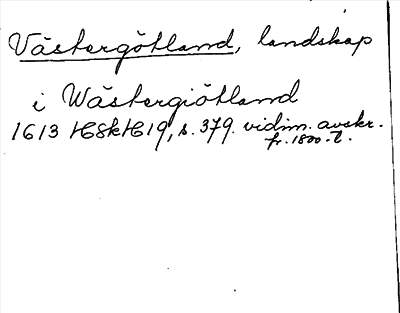 Västergötland, landskap
i Wästergiötland
1613 HSkH 19, s. 379. vidim. avskr.
fr. 1800-t.